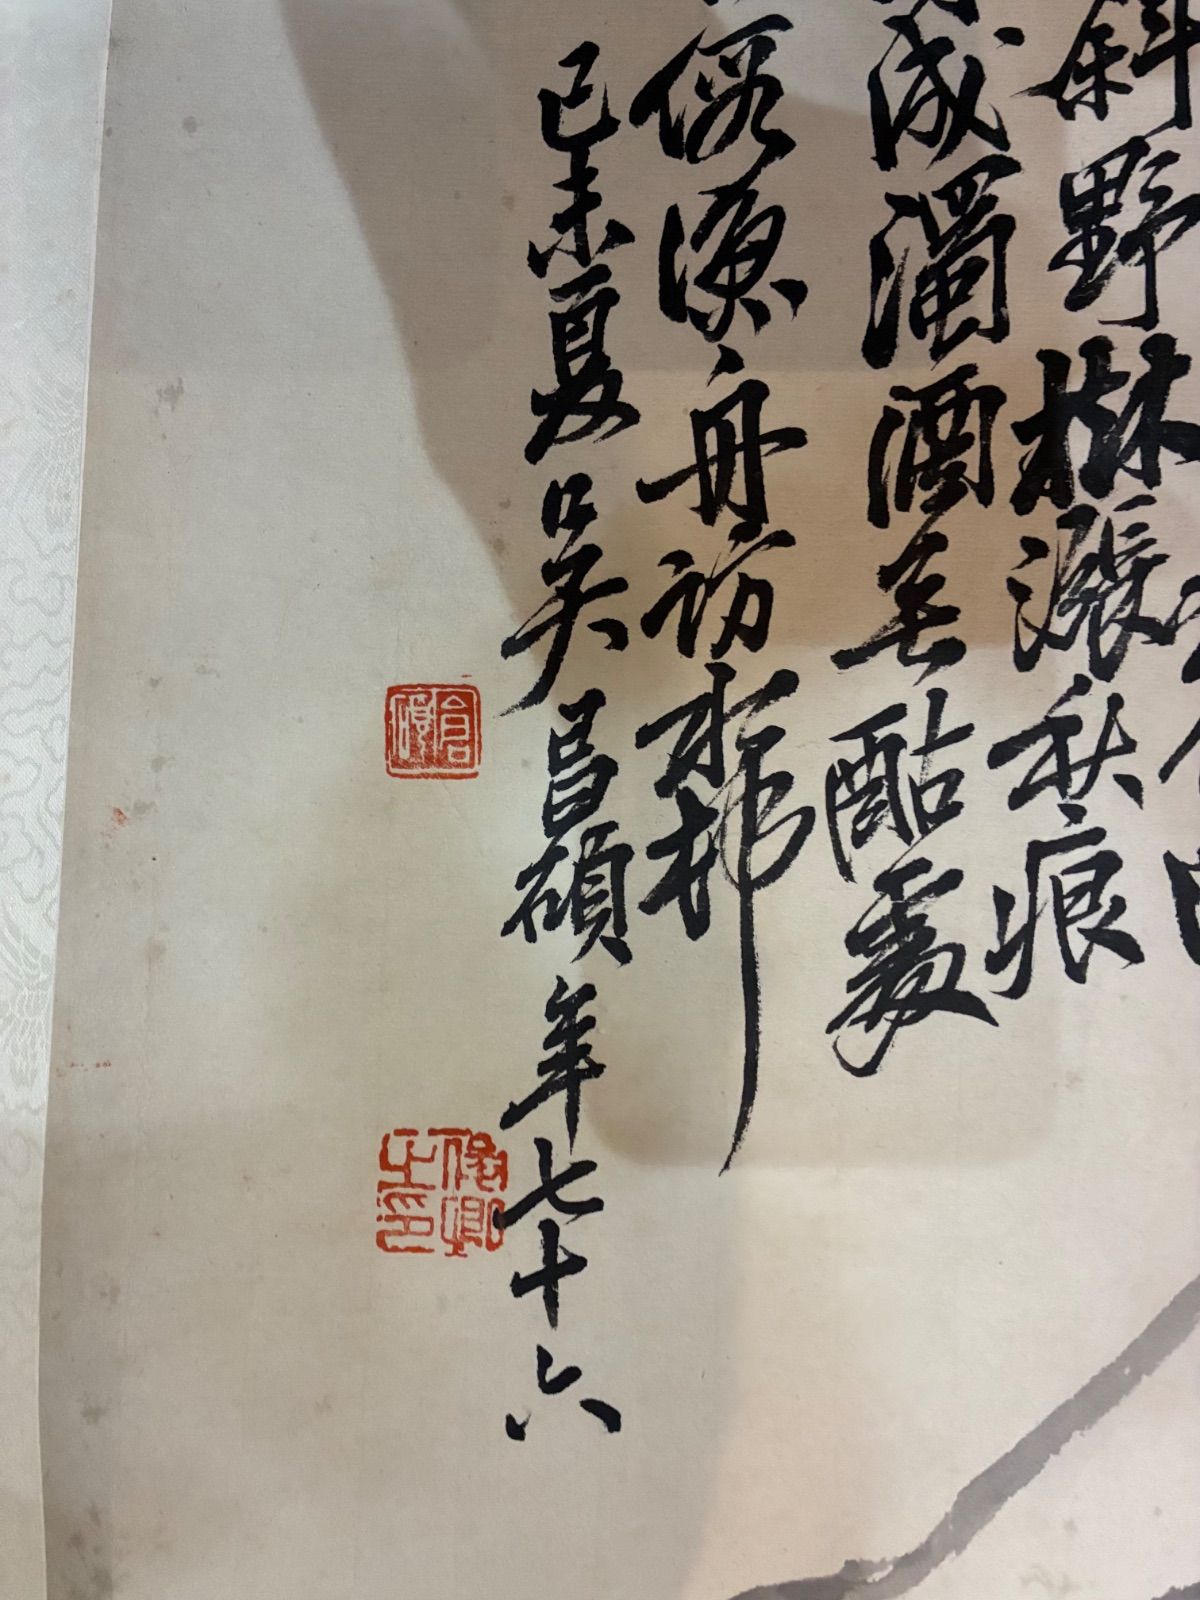 斜野㯽漲秋痕
成濁酒無酤處
假漁舟訪水村
己未夏吳昌碩年七十六
倉碩
俊卿之印